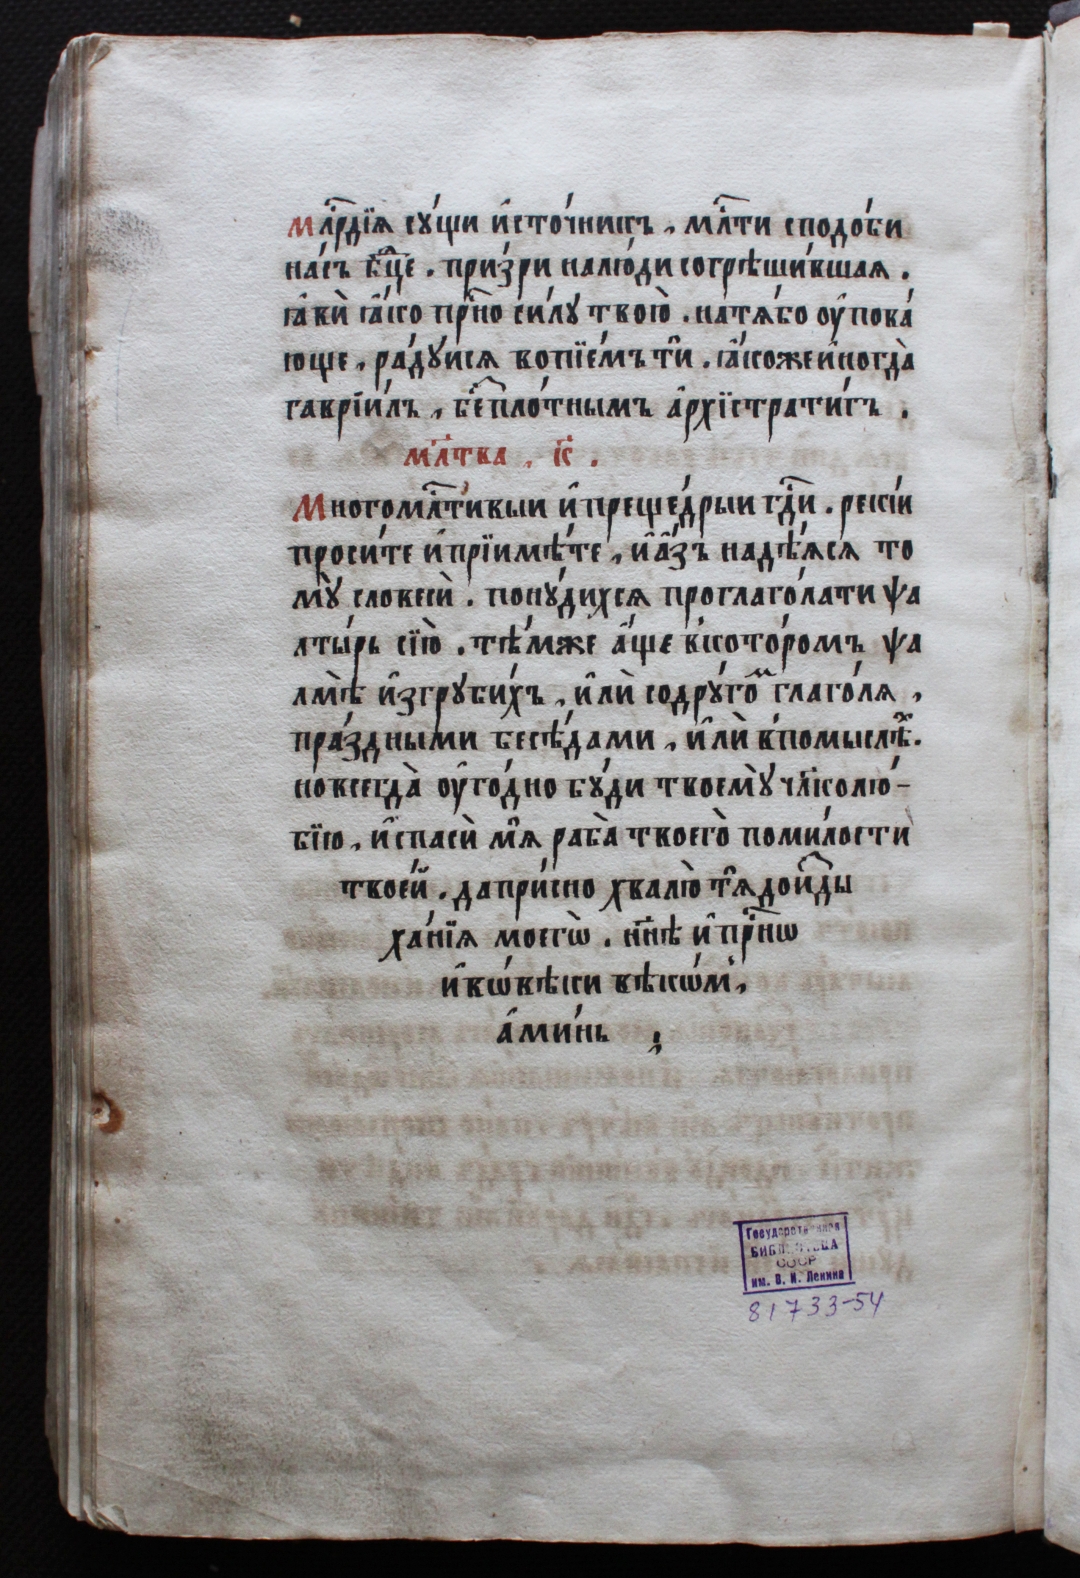 млⷭ҇рдїѧ сꙋ́щи и҆сто́чникъ, млⷭ҇ти сподо́би
на́съ бцⷣе. при́зри налю́ди согрѣши́вшаѧ.
ꙗ҆вѝ ꙗ҆́ко прⷭ҇но си́лꙋ твою̀. натѧ́бо оу҆пова́
юще, ра́дꙋисѧ вопїе́мъ ти҆. ꙗ҆́коже и҆ногда̀
гаврїи́лъ, бепⷭ҇ло́тнымъ а҆рхїстрати́гъ.
млⷭ҇тва, к҃.
Многомлⷭ҇тивыи и҆ преще́дрыи гдⷭ҇и. реки́и
проси́те и҆ прїимѣ́те, и҆ а҆́зъ надѣ́ѧсѧ то
мꙋ̀ словесѝ. понꙋ́дихсѧ проглаго́лати ѱа
лты́рь сїю̀. тѣ́мже а҆́ще вкото́ромъ ѱа
лмѣ̀ и҆згрꙋби́хъ, и҆лѝ содрꙋгоⷨ глаго́лѧ,
пра́здными бесѣ́дами, и҆лѝ впомыслѣⷯ.
новсегда̀ оу҆го́дно бꙋ́ди твоемꙋ̀ чл҃колю́-
бїю, и҆ спасѝ мѧ҆ раба̀ твоего̀ поми́лости
твое́й. дапри́сно хвалю̀ тѧ҆ до и҆ⷥды
ха́нїѧ моегѡ̀. нн҃ѣ и҆ прⷭ҇нѡ
и҆ вѡ́вѣки вѣкѡ́мⷺ,
а҆ми́нь ;
Государственная
БИБЛИОТЕКА
СССР
им. В. И. Ленина
81733-54